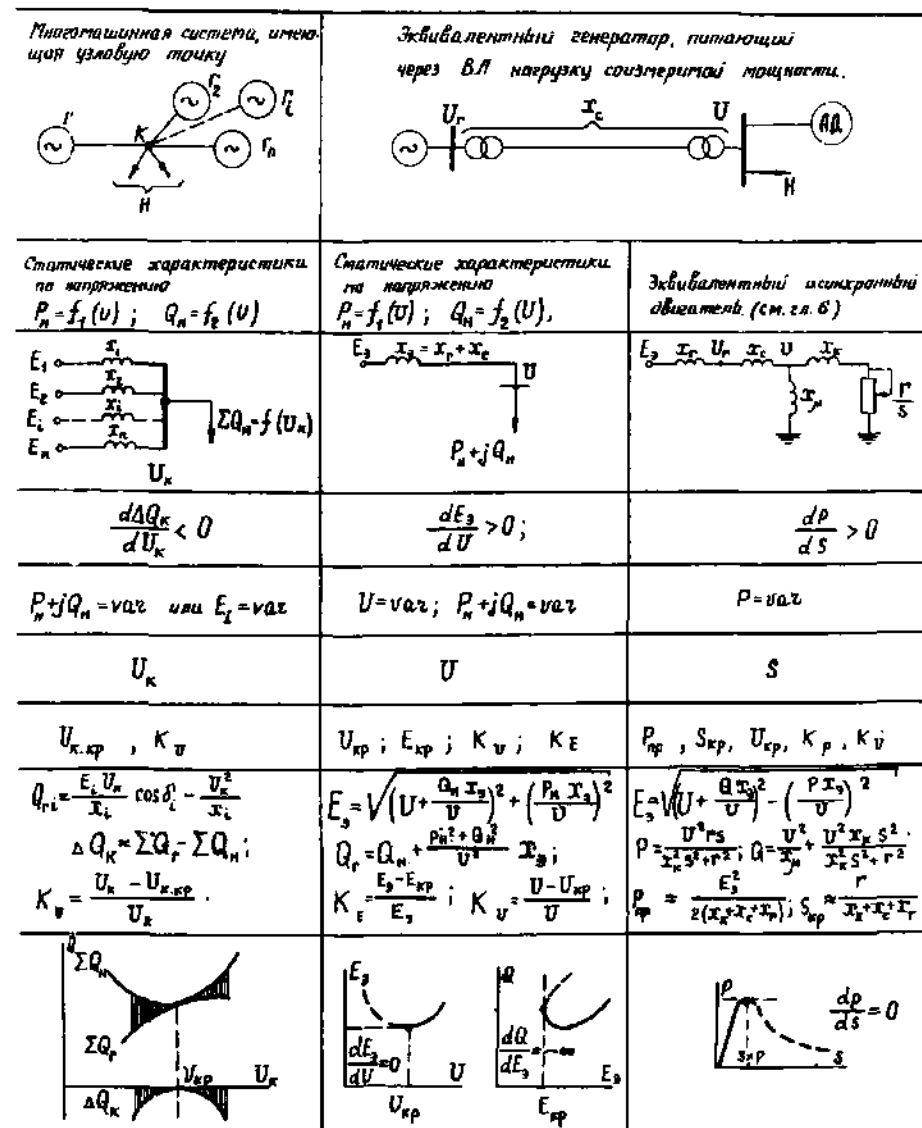 Многомашинная система, имею-
щая узловую точку
Г
Г₂
Гᵢ
К
Гₙ
Н
Эквивалентный генератор, питающий
через ВЛ нагрузку соизмеримой мощности.
Uг
xс
U
АД
Н
Статические характеристики
по напряжению
Pн=f₁(U) ; Qн=f₂(U)
Статические характеристики
по напряжению
Pн=f₁(U) ; Qн=f₂(U),
Эквивалентный асинхронный
двигатель (см. гл. 6)
E₁ x₁
E₂ x₂
Eᵢ xᵢ
Eₙ xₙ
ΣQн=f(Uк)
Uк
Eэ xэ = xг + xс
U
Pн+jQн
Eэ xг Uг xс U xк
xμ
r/s
dΔQк/dUк < 0
dEэ/dU > 0 ;
dP/dS > 0
Pн+jQн=var или Eᵢ=var
U=var ; Pн+jQн=var
P=var
Uк
U
S
Uк.кр , KU
Uкр ; Eкр ; KU ; KE
Pпр , Sкр, Uкр, Kр , KU
Qгi=EᵢUк/xᵢ cosδᵢ − Uк²/xᵢ
ΔQк=ΣQг−ΣQн ;
KU = (Uк − Uк.кр)/Uк .
Eэ=√((U+Qн xэ/U)² + (Pн xэ/U)²)
Qг=Qн + (Pн²+Qн²)/U² xэ ;
KE=(Eэ−Eкр)/Eэ ; KU=(U−Uкр)/U ;
Eэ=√((U+Q xэ/U)² − (P xэ/U)²)
P=U²rs/(xк²s²+r²) ; Q=U²/xμ + U²xк s²/(xк²s²+r²)
Pпр ≈ Eэ²/2(xк+xс+xг) ; Sкр ≈ r/(xк+xс+xг)
Q
ΣQн
ΣQг
Uкр
Uк
ΔQк
Eэ
dEэ/dU=0
U
Uкр
Q
dQ/dEэ=−∞
Eэ
Eкр
P
dp/ds=0
sкр
s